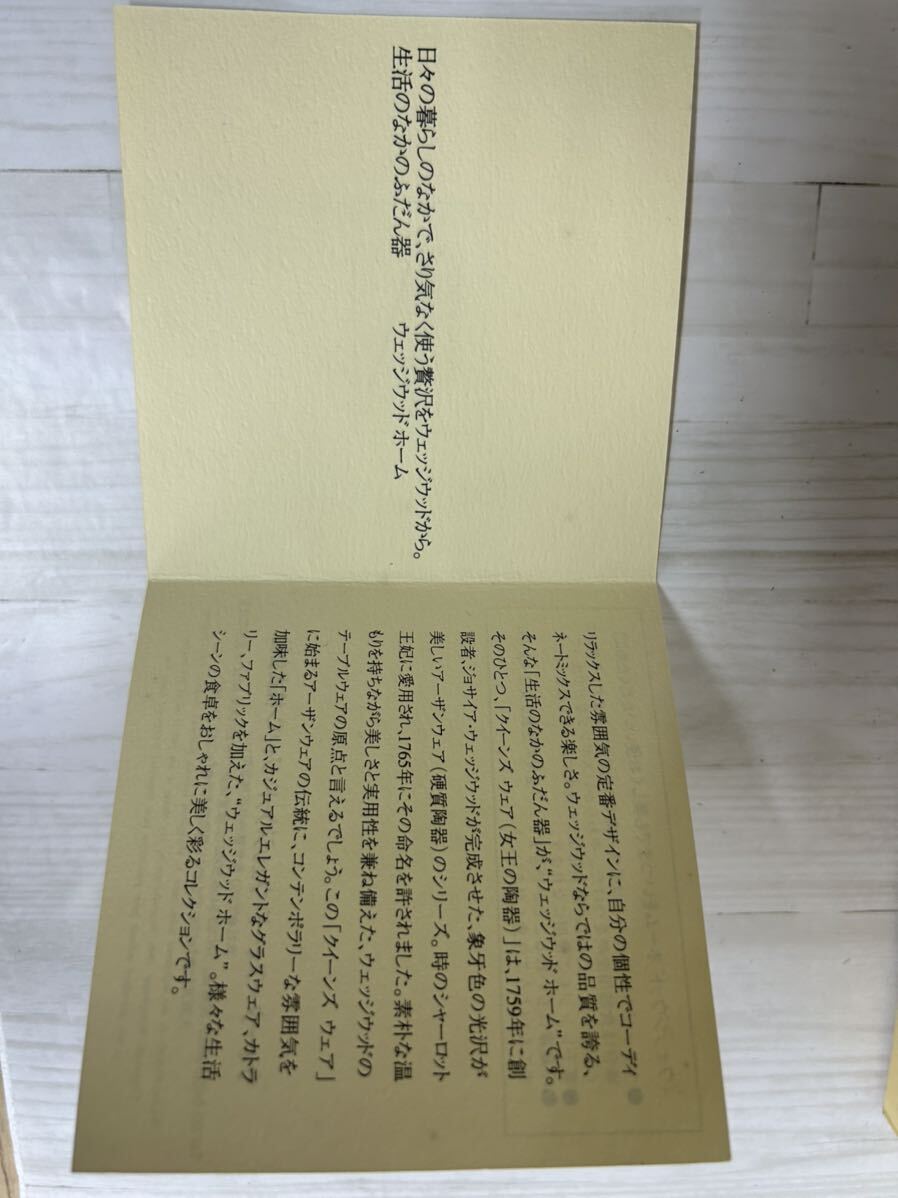 日々の暮らしのなかで、さり気なく使う贅沢をウェッジウッドから。
生活のなかのふだん器　ウェッジウッド ホーム
リラックスした雰囲気の定番デザインに、自分の個性でコーディ
ネートミックスできる楽しさ。ウェッジウッドならではの品質を誇る、
そんな「生活のなかのふだん器」が、“ウェッジウッド ホーム”です。
そのひとつ、「クイーンズ ウェア（女王の陶器）」は、1759年に創
設者、ジョサイア・ウェッジウッドが完成させた、象牙色の光沢が
美しいアーザンウェア（硬質陶器）のシリーズ。時のシャーロット
王妃に愛用され、1765年にその命名を許されました。素朴な温
もりを持ちながら美しさと実用性を兼ね備えた、ウェッジウッドの
テーブルウェアの原点と言えるでしょう。この「クイーンズ ウェア」
に始まるアーザンウェアの伝統に、コンテンポラリーな雰囲気を
加味した「ホーム」と、カジュアルエレガントなグラスウェア、カトラ
リー、ファブリックを加えた、“ウェッジウッド ホーム”。様々な生活
シーンの食卓をおしゃれに美しく彩るコレクションです。